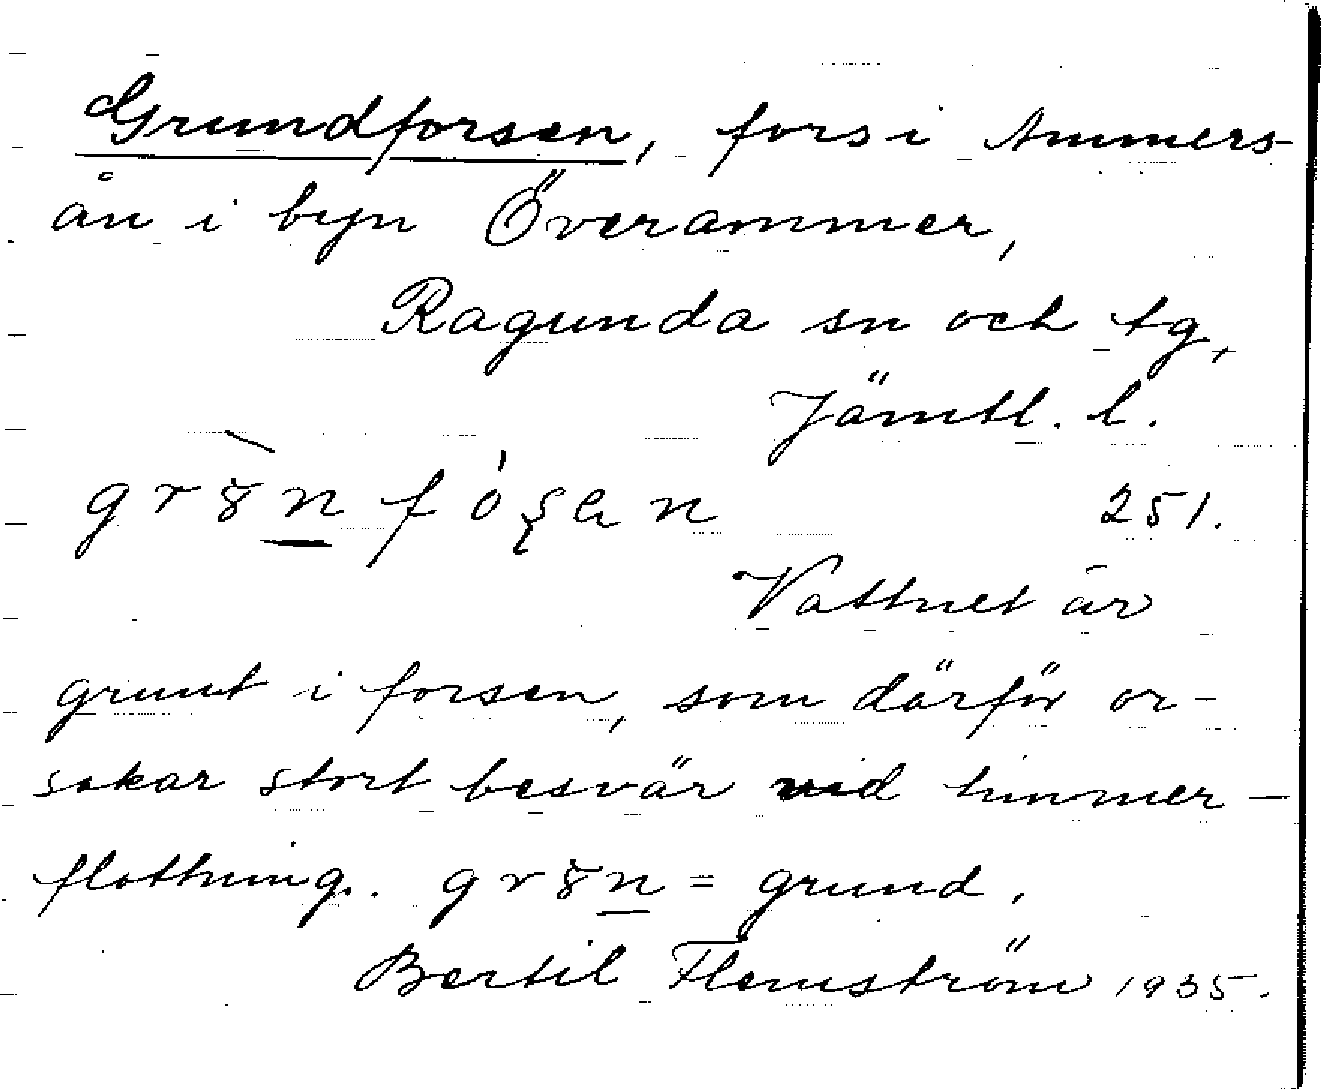 Grundforsen, fors i Ammers-
ån i byn Överammer,
Ragunda sn och tg,
Jämtl. l.
251.
Vattnet är
grunt i forsen, som därför or-
sakar stort besvär vid timmer-
flottning. = grund.
Bertil Flemström 1935.